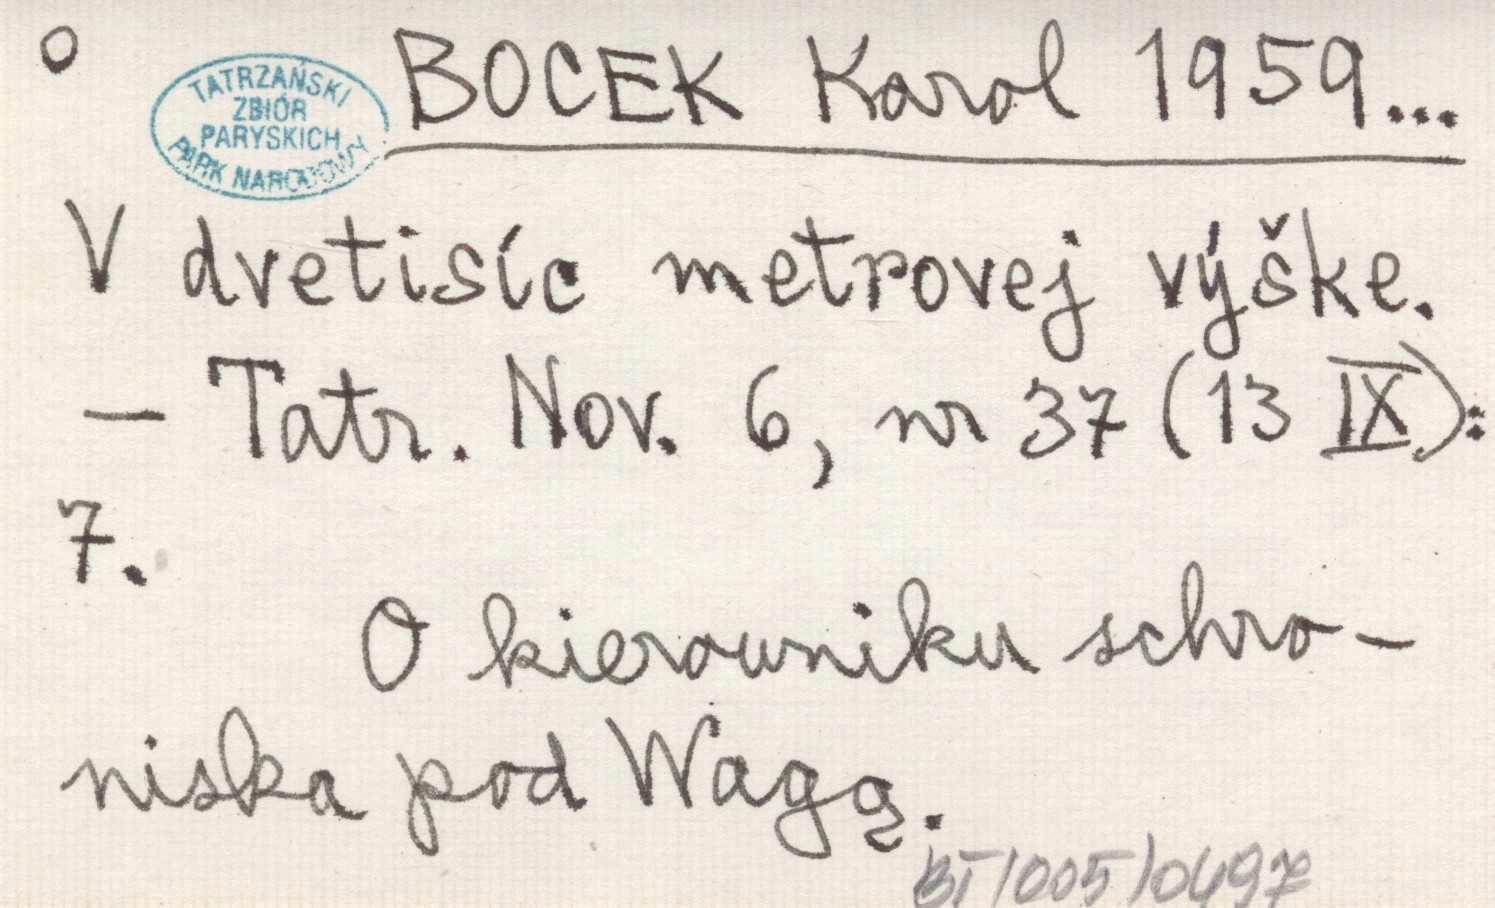 o
BOCEK Karol 1959...
TATRZAŃSKI
ZBIÓR
PARYSKICH
PARK NARODOWY
V dvetisíc metrovej výške.
— Tatr. Nov. 6, nr 37 (13 IX):
7.
O kierowniku schro-
niska pod Wagą.
BT/005/0497